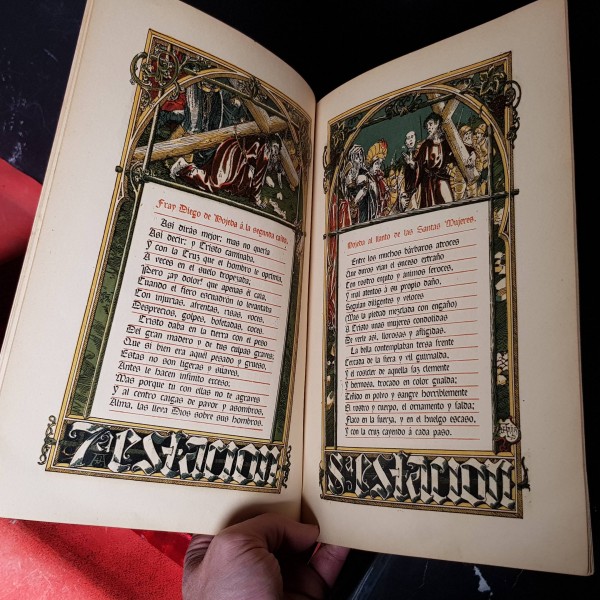 Fray Diego de Hojeda á la segunda caída,
Así dirás mejor; mas no quería
Así decir; y Cristo caminaba,
Y con la Cruz que el hombro le oprimía,
A veces en el suelo tropezaba;
Pero ¡ay dolor! que apenas él caía,
Cuando el fiero escuadrón lo levantaba
Con injurias, afrentas, risas, roces,
Desprecios, golpes, bofetadas, coces.
Cristo daba en la tierra con el peso
Del gran madero y de tus culpas graves;
Que si bien era aquél pesado y grueso,
Éstas no son ligeras y suaves,
Antes le hacen infinito exceso;
Mas porque tú con días no te agraves
Y al centro caigas de pavor y asombros,
Alma, las lleva Dios sobre sus hombros.
7ª ESTACION
Hojeda al llanto de las Santas Mujeres.
Entre los muchos bárbaros atroces
Que duros vían el suceso extraño
Con rostro enjuto y ánimos feroces,
Y mal atentos á su propio daño,
Seguían diligentes y veloces
(Mas la piedad mezclada con engaño)
A Cristo unas mujeres condolidas
De verle así, llorosas y afligidas.
La bella contemplaban tersa frente
Cercada de la fiera y vil guirnalda,
Y el rosicler de aquella faz clemente
Y hermosa, trocado en color gualda;
Teñido en polvo y sangre horriblemente
El rostro y cuerpo, el ornamento y falda;
Flaco en la fuerza, y en el huelgo escaso,
Y con la cruz cayendo á cada paso.
8ª ESTACION